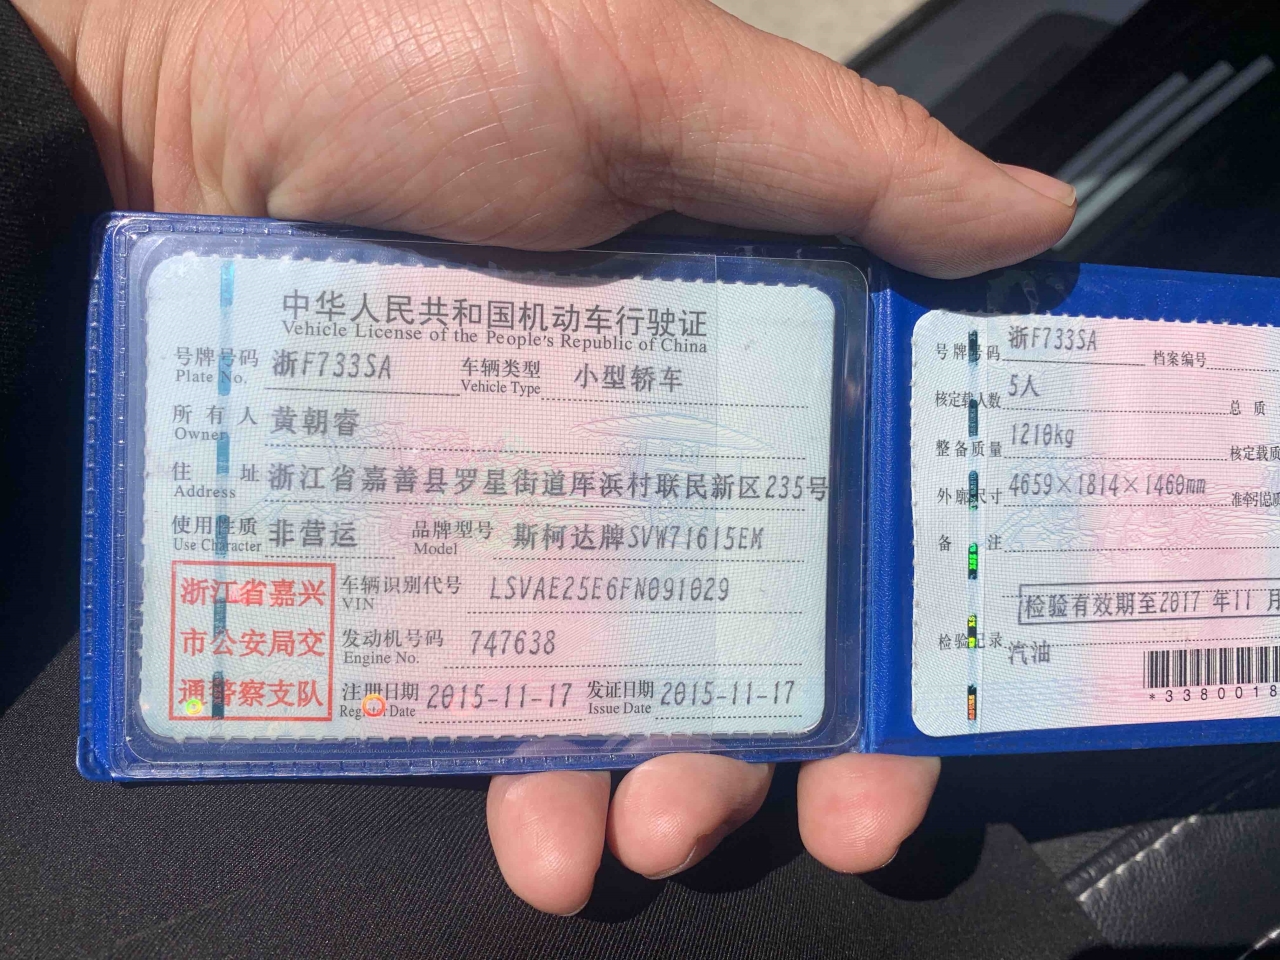 中华人民共和国机动车行驶证
Vehicle License of the People's Republic of China
号牌号码 浙F733SA 车辆类型 小型轿车
Plate No. Vehicle Type
所有人 黄朝睿
Owner
住址 浙江省嘉善县罗星街道厍浜村联民新区235号
Address
使用性质 非营运 品牌型号 斯柯达牌SVW71615EM
Use Character Model
浙江省嘉兴
市公安局交
通警察支队
车辆识别代号 LSVAE25E6FN091029
VIN
发动机号码 747638
Engine No.
注册日期 2015-11-17 发证日期 2015-11-17
Register Date Issue Date
号牌号码 浙F733SA 档案编号
核定载人数 5人 总质
整备质量 1210kg 核定载质
外廓尺寸 4659×1814×1460mm 准牵引总质
备注
检验有效期至2017年11月
检验记录
汽油
*3380018